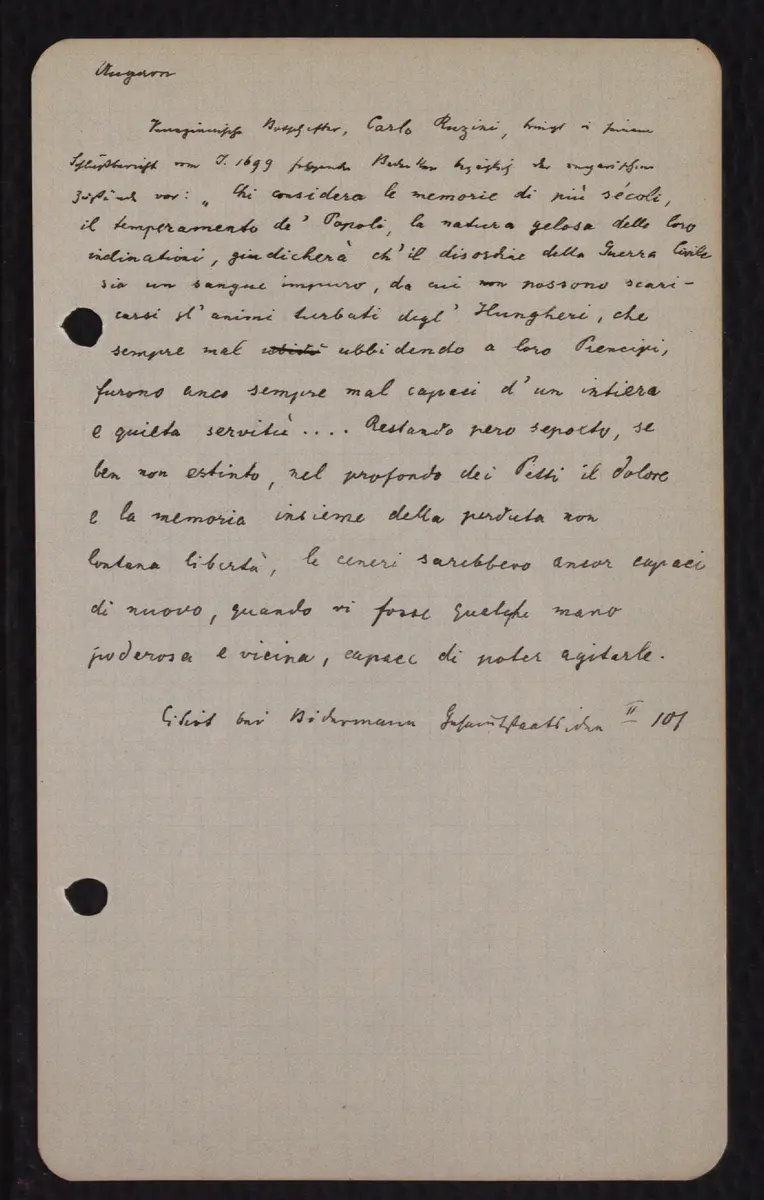 Ungarn
Venezianische Botschafter, Carlo Ruzini, bringt in seinem
Schlußbericht vom J. 1699 folgende Bedenken bezüglich der ungarischen
Zustände vor: „Chi considera le memorie di più sécoli,
il temperamento de' Popoli, la natura gelosa delle loro
inclinationi, giudicherà ch'il disordine della Guerra Civile
sia un sangue impuro, da cui non possono scari-
carsi gl'animi turbati degl' Hungheri, che
sempre mal ubbidendo a loro Prencipi,
furono anco sempre mal capaci d'un intiera
e quieta servitù .... Restando pero seposto, se
ben non estinto, nel profondo dei Petti il dolore
e la memoria insieme della perduta non
lontana libertà, le ceneri sarebbero ancor capaci
di nuovo, quando vi fosse qualche mano
poderosa e vicina, capace di poter agitarle.
Citirt bei Bidermann Gesamtstaatsidee II 101